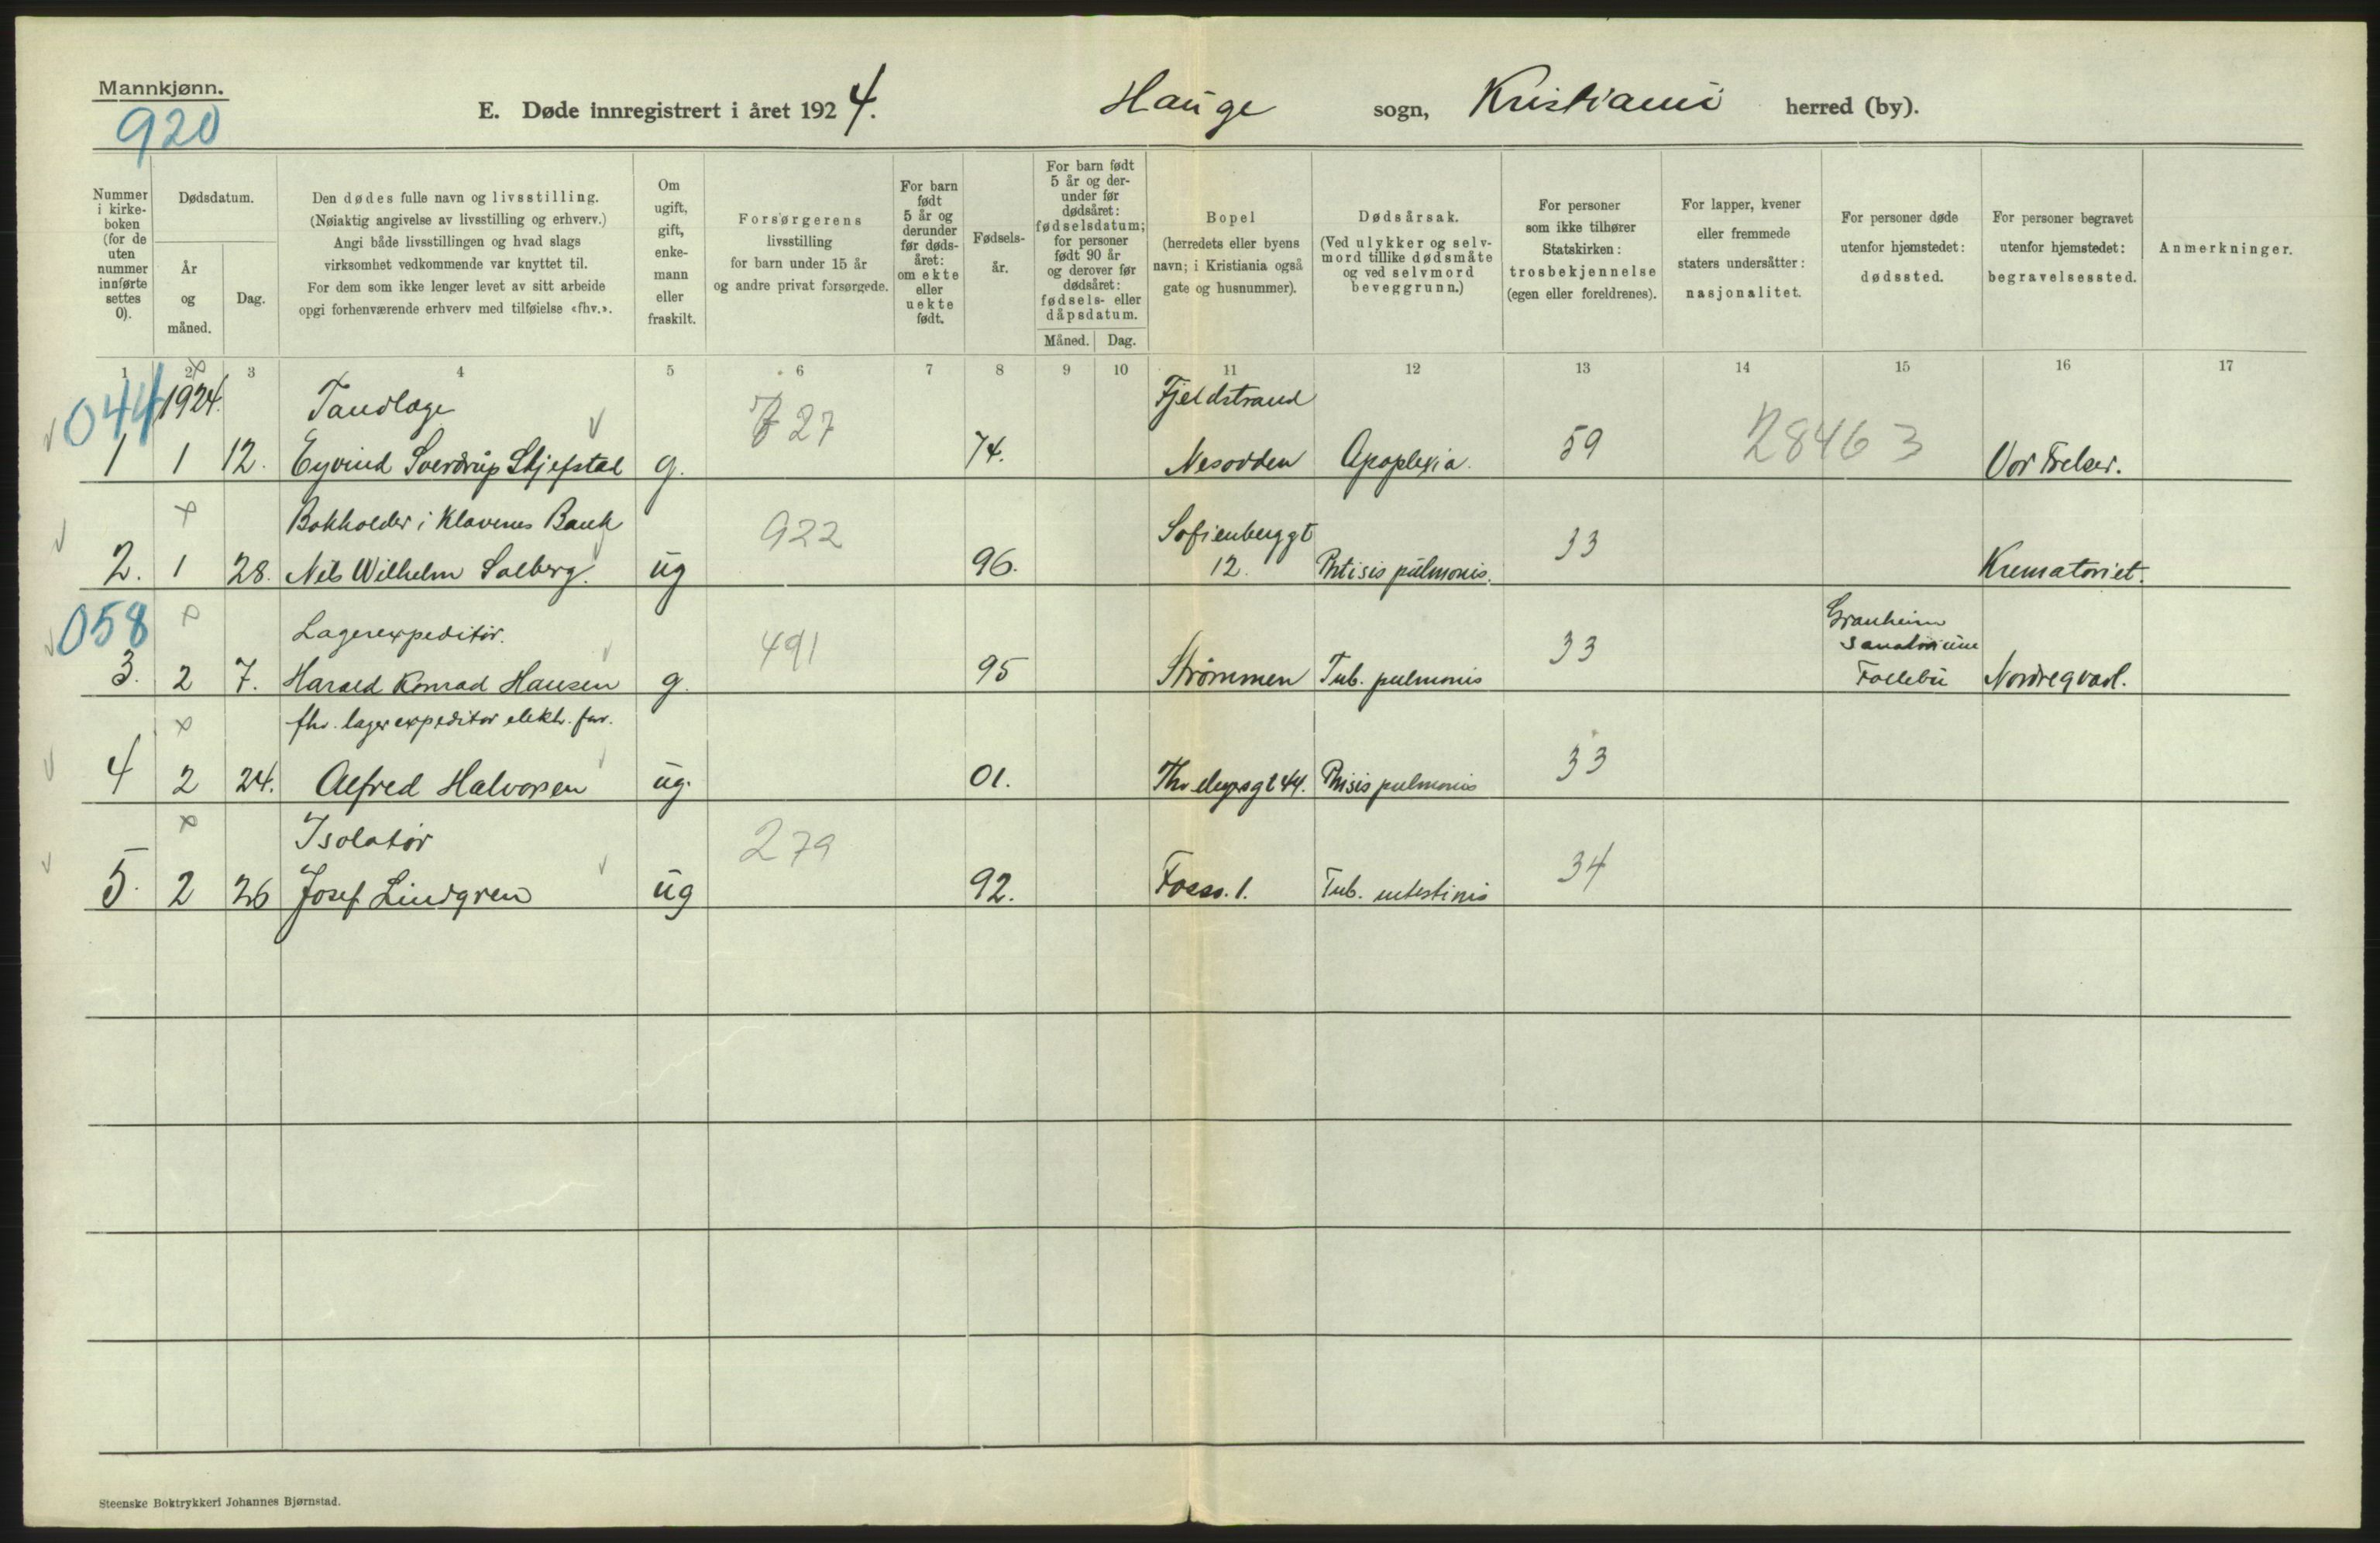 Mannkjønn.
920
E. Døde innregistrert i året 1924.
Hauge sogn, Kristiania herred (by).
Nummer i kirke-boken (for de uten nummer innførte settes 0).
Dødsdatum.
År og måned.
Dag.
Den dødes fulle navn og livsstilling.
(Nøiaktig angivelse av livsstilling og erhverv.)
Angi både livsstillingen og hvad slags
virksomhet vedkommende var knyttet til.
For dem som ikke lenger levet av sitt arbeide
opgi forhenværende erhverv med tilføielse «fhv.».
Om ugift, gift, enke-mann eller fraskilt.
Forsørgerens
livsstilling
for barn under 15 år
og andre privat forsørgede.
For barn født 5 år og derunder før døds-året: om ekte eller uekte født.
Fødsels-år.
For barn født 5 år og der-under før dødsåret: fødselsdatum; for personer født 90 år og derover før dødsåret: fødsels- eller dåpsdatum.
Måned. Dag.
Bopel
(herredets eller byens
navn; i Kristiania også
gate og husnummer).
Dødsårsak.
(Ved ulykker og selv-
mord tillike dødsmåte
og ved selvmord
beveggrunn.)
For personer
som ikke tilhører
Statskirken:
trosbekjennelse
(egen eller foreldrenes).
For lapper, kvener
eller fremmede
staters undersåtter:
nasjonalitet.
For personer døde
utenfor hjemstedet:
dødssted.
For personer begravet
utenfor hjemstedet:
begravelsessted.
Anmerkninger.
1 2 3 4 5 6 7 8 9 10 11 12 13 14 15 16 17
044 1924. Tandlæge 727 Fjeldstrand 28463
1 1 12. Eyvind Sverdrup Skjefstad g. 74. Nesodden Apoplexia. 59 Vor Frelser.
Bokholder i Klavenes Bank 922 Sofienberggt
2. 1 28. Nils Wilhelm Solberg. ug 96. 12. Phtisis pulmonis. 33 Krematoriet.
058 Lagerexpeditør. 491 Granheim
sanatorium
3. 2 7. Harald Konrad Hansen g. 95 Strømmen Tub. pulmonis 33 Follebu Nordre gravl.
fhv. lagerexpeditør elektr. forr.
4 2 24. Alfred Halvorsen ug. 01. Thv. Meyersgt 44. Phisis pulmonis 33
Isolatør 279
5. 2 26 Josef Lindgren ug 92. Fossv. 1. Tub. intestinis 34
Steenske Boktrykkeri Johannes Bjørnstad.